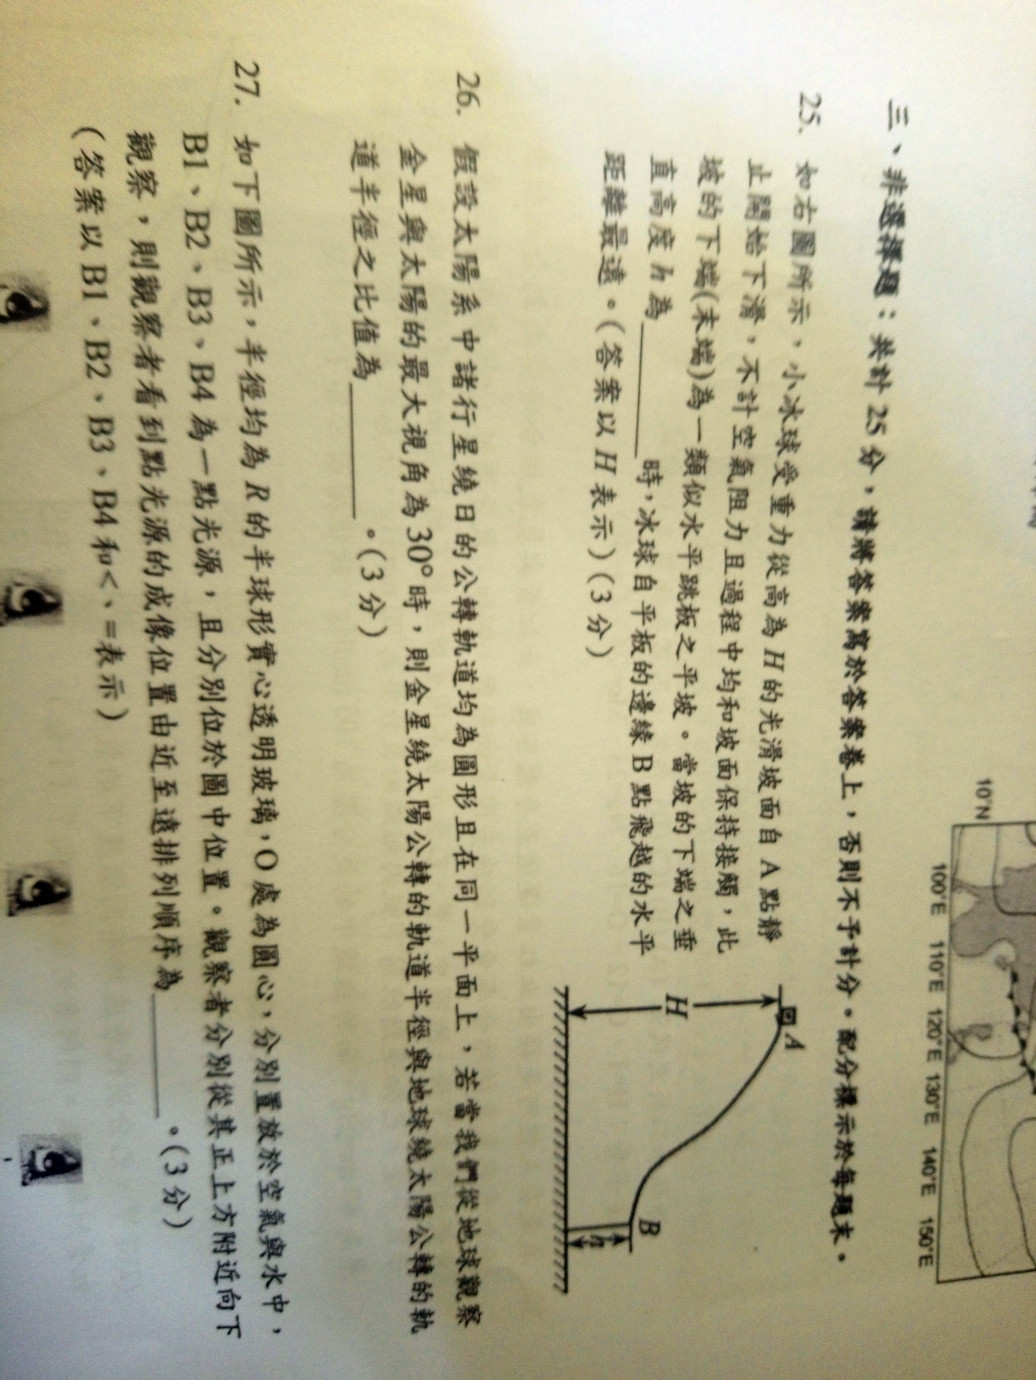 10°N
100°E 110°E 120°E 130°E 140°E 150°E
三、非選擇題：共計 25 分，請將答案寫於答案卷上，否則不予計分。配分標示於每題末。
25. 如右圖所示，小冰球受重力從高為 H 的光滑坡面自 A 點靜
止開始下滑，不計空氣阻力且過程中均和坡面保持接觸，此
坡的下端(末端)為一類似水平跳板之平坡。當坡的下端之垂
直高度 h 為________時，冰球自平板的邊緣 B 點飛越的水平
距離最遠。(答案以 H 表示)(3 分)
A
H
B
h
26. 假設太陽系中諸行星繞日的公轉軌道均為圓形且在同一平面上，若當我們從地球觀察
金星與太陽的最大視角為 30° 時，則金星繞太陽公轉的軌道半徑與地球繞太陽公轉的軌
道半徑之比值為________。(3 分)
27. 如下圖所示，半徑均為 R 的半球形實心透明玻璃，O 處為圓心，分別置放於空氣與水中，
B1、B2、B3、B4 為一點光源，且分別位於圖中位置。觀察者分別從其正上方附近向下
觀察，則觀察者看到點光源的成像位置由近至遠排列順序為________。(3 分)
(答案以 B1、B2、B3、B4 和<、=表示)